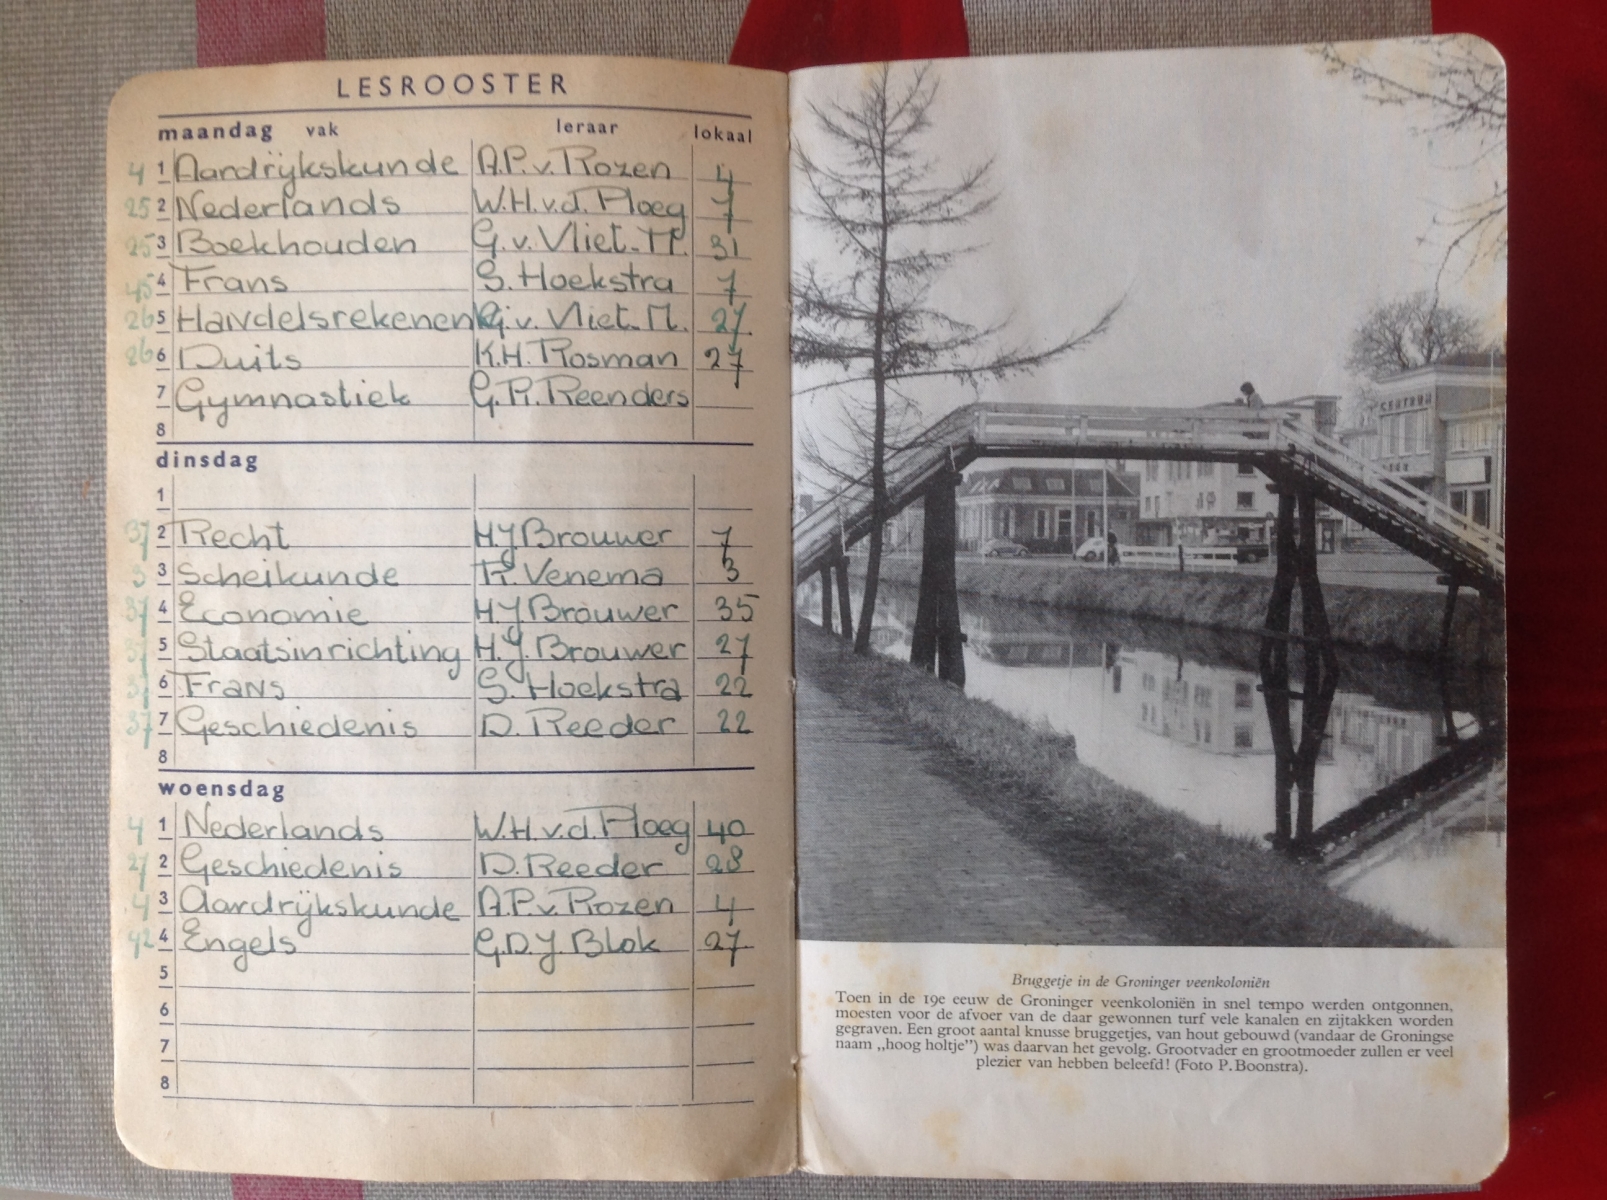 LESROOSTER
maandag vak leraar lokaal
4 1 Aardrijkskunde A.P. v. Rozen 4
25 2 Nederlands W.H. v.d. Ploeg 7
25 3 Boekhouden G. v. Vliet-M. 31
45 4 Frans S. Hoekstra 7
26 5 Handelsrekenen G. v. Vliet-M. 27
26 6 Duits K.H. Rosman 27
7 Gymnastiek G.R. Reenders
8
dinsdag
1
37 2 Recht H.J. Brouwer 7
3 3 Scheikunde R. Venema 3
37 4 Economie H.J. Brouwer 35
37 5 Staatsinrichting H.J. Brouwer 27
37 6 Frans S. Hoekstra 22
37 7 Geschiedenis D. Reeder 22
8
woensdag
4 1 Nederlands W.H. v.d. Ploeg 40
27 2 Geschiedenis D. Reeder 28
4 3 Aardrijkskunde A.P. v. Rozen 4
42 4 Engels G.D.J. Blok 27
5
6
7
8
CENTRUM
Bruggetje in de Groninger veenkoloniën
Toen in de 19e eeuw de Groninger veenkoloniën in snel tempo werden ontgonnen,
moesten voor de afvoer van de daar gewonnen turf vele kanalen en zijtakken worden
gegraven. Een groot aantal knusse bruggetjes, van hout gebouwd (vandaar de Groningse
naam „hoog holtje”) was daarvan het gevolg. Grootvader en grootmoeder zullen er veel
plezier van hebben beleefd! (Foto P. Boonstra).